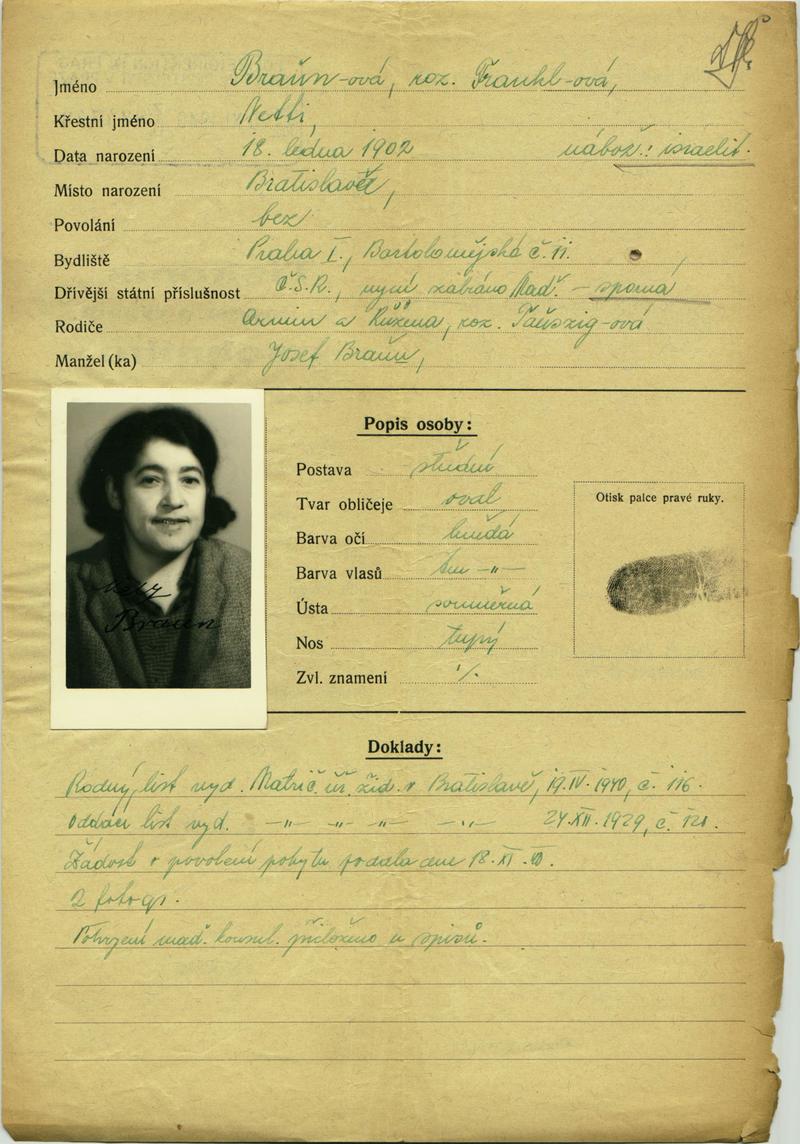 Jméno Braun-ová, roz. Frankl-ová,
Křestní jméno Netti,
Data narození 18. ledna 1902 nábož.: israelit.
Místo narození Bratislava,
Povolání bez
Bydliště Praha I., Bartolomějská č. 11.
Dřívější státní příslušnost Č.S.R., nyní zabráno Maď. – sporná
Rodiče Armin a Růžena, roz. Taussig-ová
Manžel (ka) Josef Braun,
Popis osoby:
Postava střední
Tvar obličeje oval
Barva očí hnědá
Barva vlasů tm -„-
Ústa souměrná
Nos tupý
Zvl. znamení ·/.
Otisk palce pravé ruky.
Netty
Braun
Doklady:
Rodný list vyd. Matrič. úř. žid. v Bratislavě, 19.IV.1940, č. 116.
Oddací list vyd. -„- -„- -„- -„- 24.XII.1929, č. 121.
Žádost o povolení pobytu podala dne 18.XI.
2 fotogr.
Potvrzení maď. konsul. přiloženo u spisů.